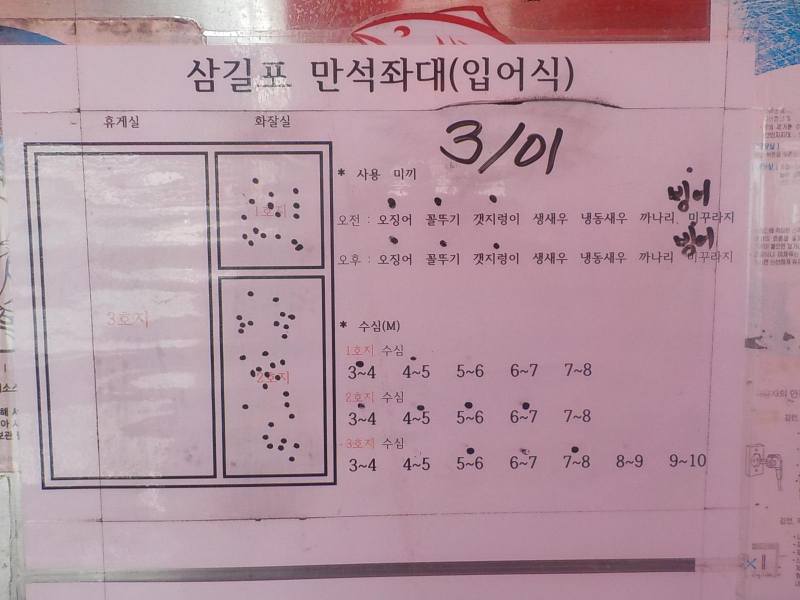 삼길포 만석좌대(입어식)
휴게실 화잘실
3/01
1호지
3호지
2호지
* 사용 미끼
빙어
오전 : 오징어 꼴뚜기 갯지렁이 생새우 냉동새우 까나리 미꾸라지
빙어
오후 : 오징어 꼴뚜기 갯지렁이 생새우 냉동새우 까나리 미꾸라지
* 수심(M)
1호지 수심
3~4 4~5 5~6 6~7 7~8
2호지 수심
3~4 4~5 5~6 6~7 7~8
3호지 수심
3~4 4~5 5~6 6~7 7~8 8~9 9~10